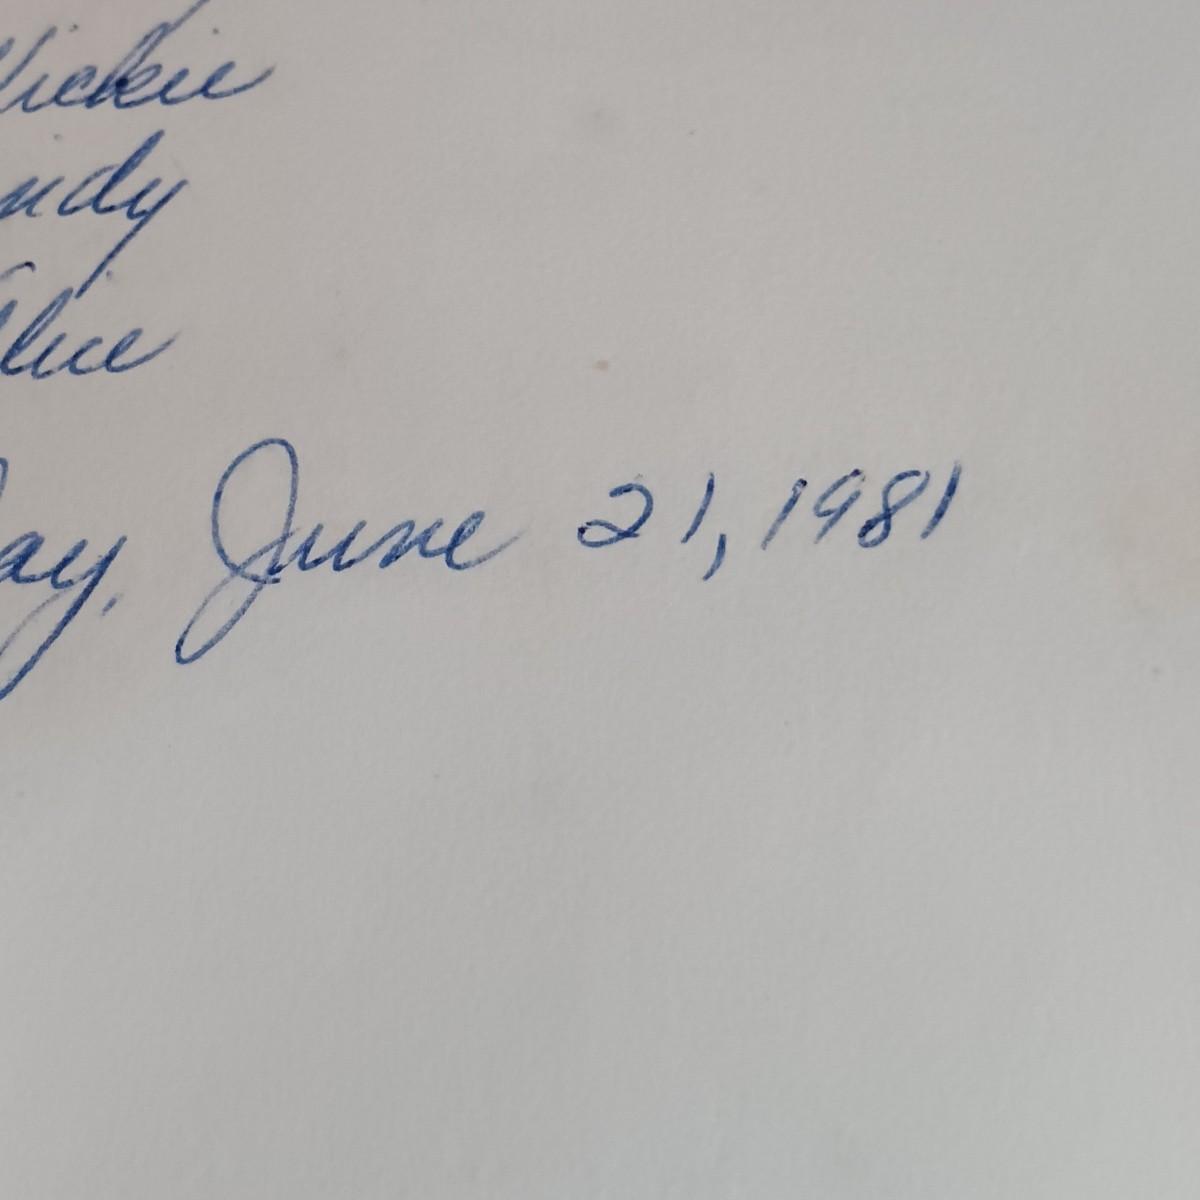 Vickie
ndy
Alice
ay, June 21, 1981